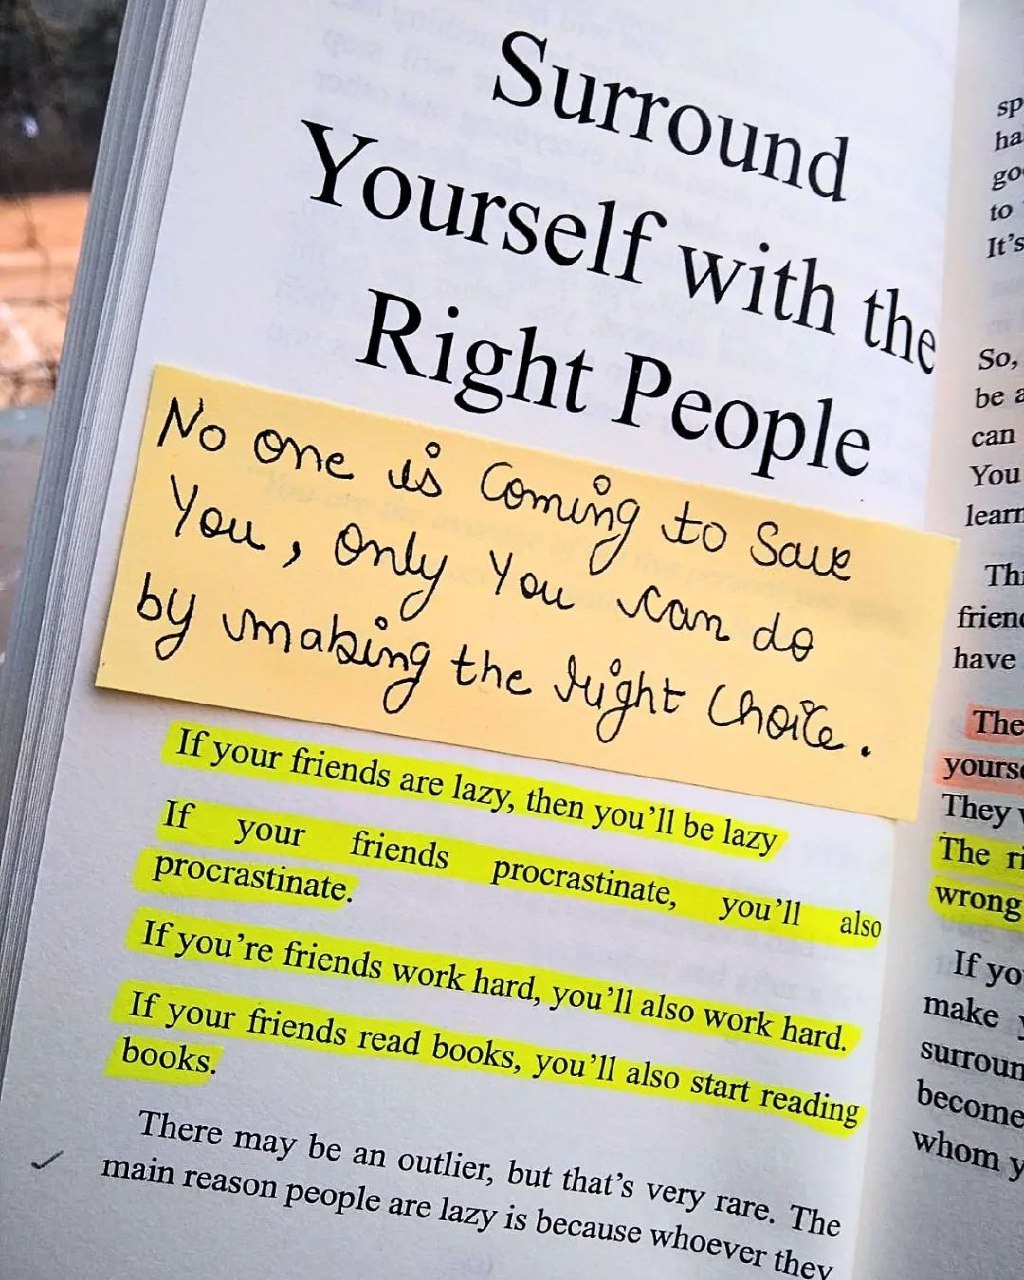 Surround
Yourself with the
Right People
No one is Coming to Save
You, Only You can do
by making the right Choice.
If your friends are lazy, then you'll be lazy
If your friends procrastinate, you'll also
procrastinate.
If you're friends work hard, you'll also work hard.
If your friends read books, you'll also start reading
books.
There may be an outlier, but that's very rare. The
main reason people are lazy is because whoever they
to
It's
So,
be a
can
You
learn
friend
have
The
They
The
wrong
If yo
make
become
whom y